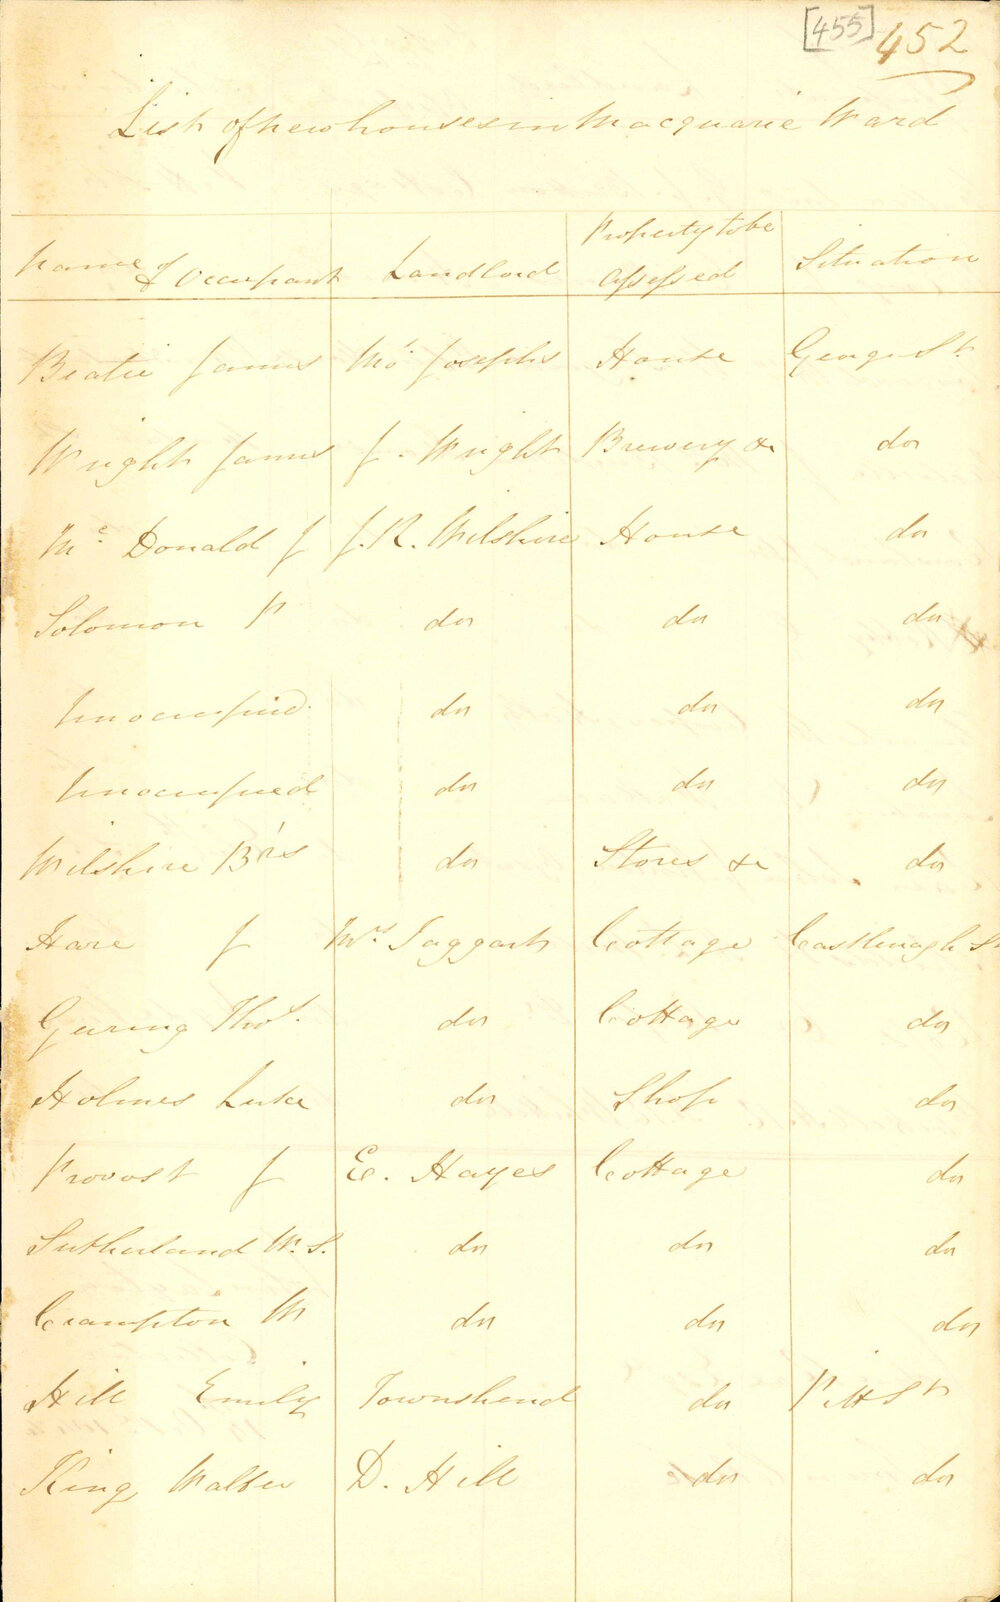 [455] 452
List of new houses in Macquarie Ward
Name of Occupant Landlord Property to be assessed Situation
Beatie James Mo Josephs House George St
Wright James J. Wright Brewery &c do
Mc Donald J J. R. Wilshire House do
Solomon P do do do
Unoccupied do do do
Unoccupied do do do
Wilshire Brs do Stores &c do
Hare J Mrs Taggart Cottage Castlereagh St
Geering Thos. do Cottage do
Holmes Luke do Shop do
Provost J E. Hayes Cottage do
Sutherland W. S. do do do
Crampton W do do do
Hill Emily Townshend do Pitt St
King Walter D. Hill do do